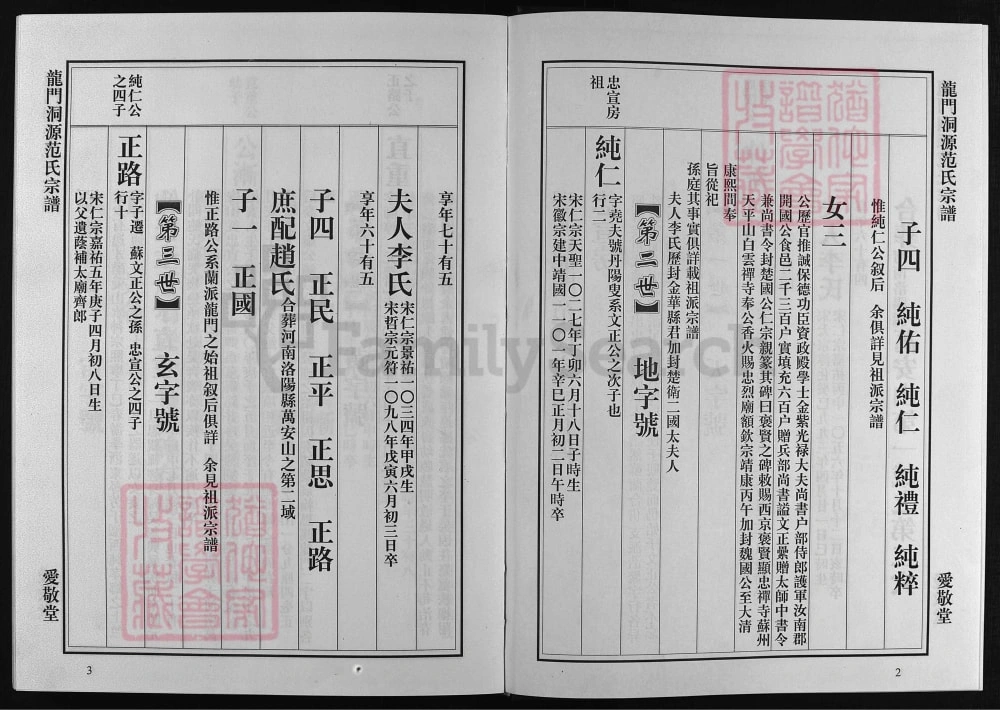 龍門洞源范氏宗譜
愛敬堂
子四 純佑 純仁 純禮 純粹
惟純仁公叙后 余俱詳見祖派宗譜
女三
公歷官推誠保德功臣資政殿學士金紫光禄大夫尚書户部侍郎護軍汝南郡
開國公食邑二千三百户實填充六百户贈兵部尚書謚文正纍贈太師中書令
兼尚書令封楚國公仁宗親篆其碑曰褒賢之碑敕賜西京褒賢顯忠禪寺蘇州
天平山白雲禪寺奉公香火賜忠烈廟額欽宗靖康丙午加封魏國公至大清
康熙間奉
旨從祀
孫庭其事實俱詳載祖派宗譜
夫人李氏歷封金華縣君加封楚衛二國太夫人
【第二世】 地字號
忠宣房
祖
純仁
字堯夫號丹陽叟系文正公之次子也
行二
宋仁宗天聖一〇二七年丁卯六月十八日子時生
宋徽宗建中靖國一一〇一年辛巳正月初二日午時卒
2
享年七十有五
夫人李氏
宋仁宗景祐一〇三四年甲戌生
宋哲宗元符一〇九八年戊寅六月初三日卒
享年六十有五
子四 正民 正平 正思 正路
庶配趙氏
合葬河南洛陽縣萬安山之第二域
子一 正國
惟正路公系蘭派龍門之始祖叙后俱詳 余見祖派宗譜
【第三世】 玄字號
純仁公
之四子
正路
字子遷 蘇文正公之孫 忠宣公之四子
行十
宋仁宗嘉祐五年庚子四月初八日生
以父遺蔭補太廟齊郎
龍門洞源范氏宗譜
愛敬堂
3
FamilySearch